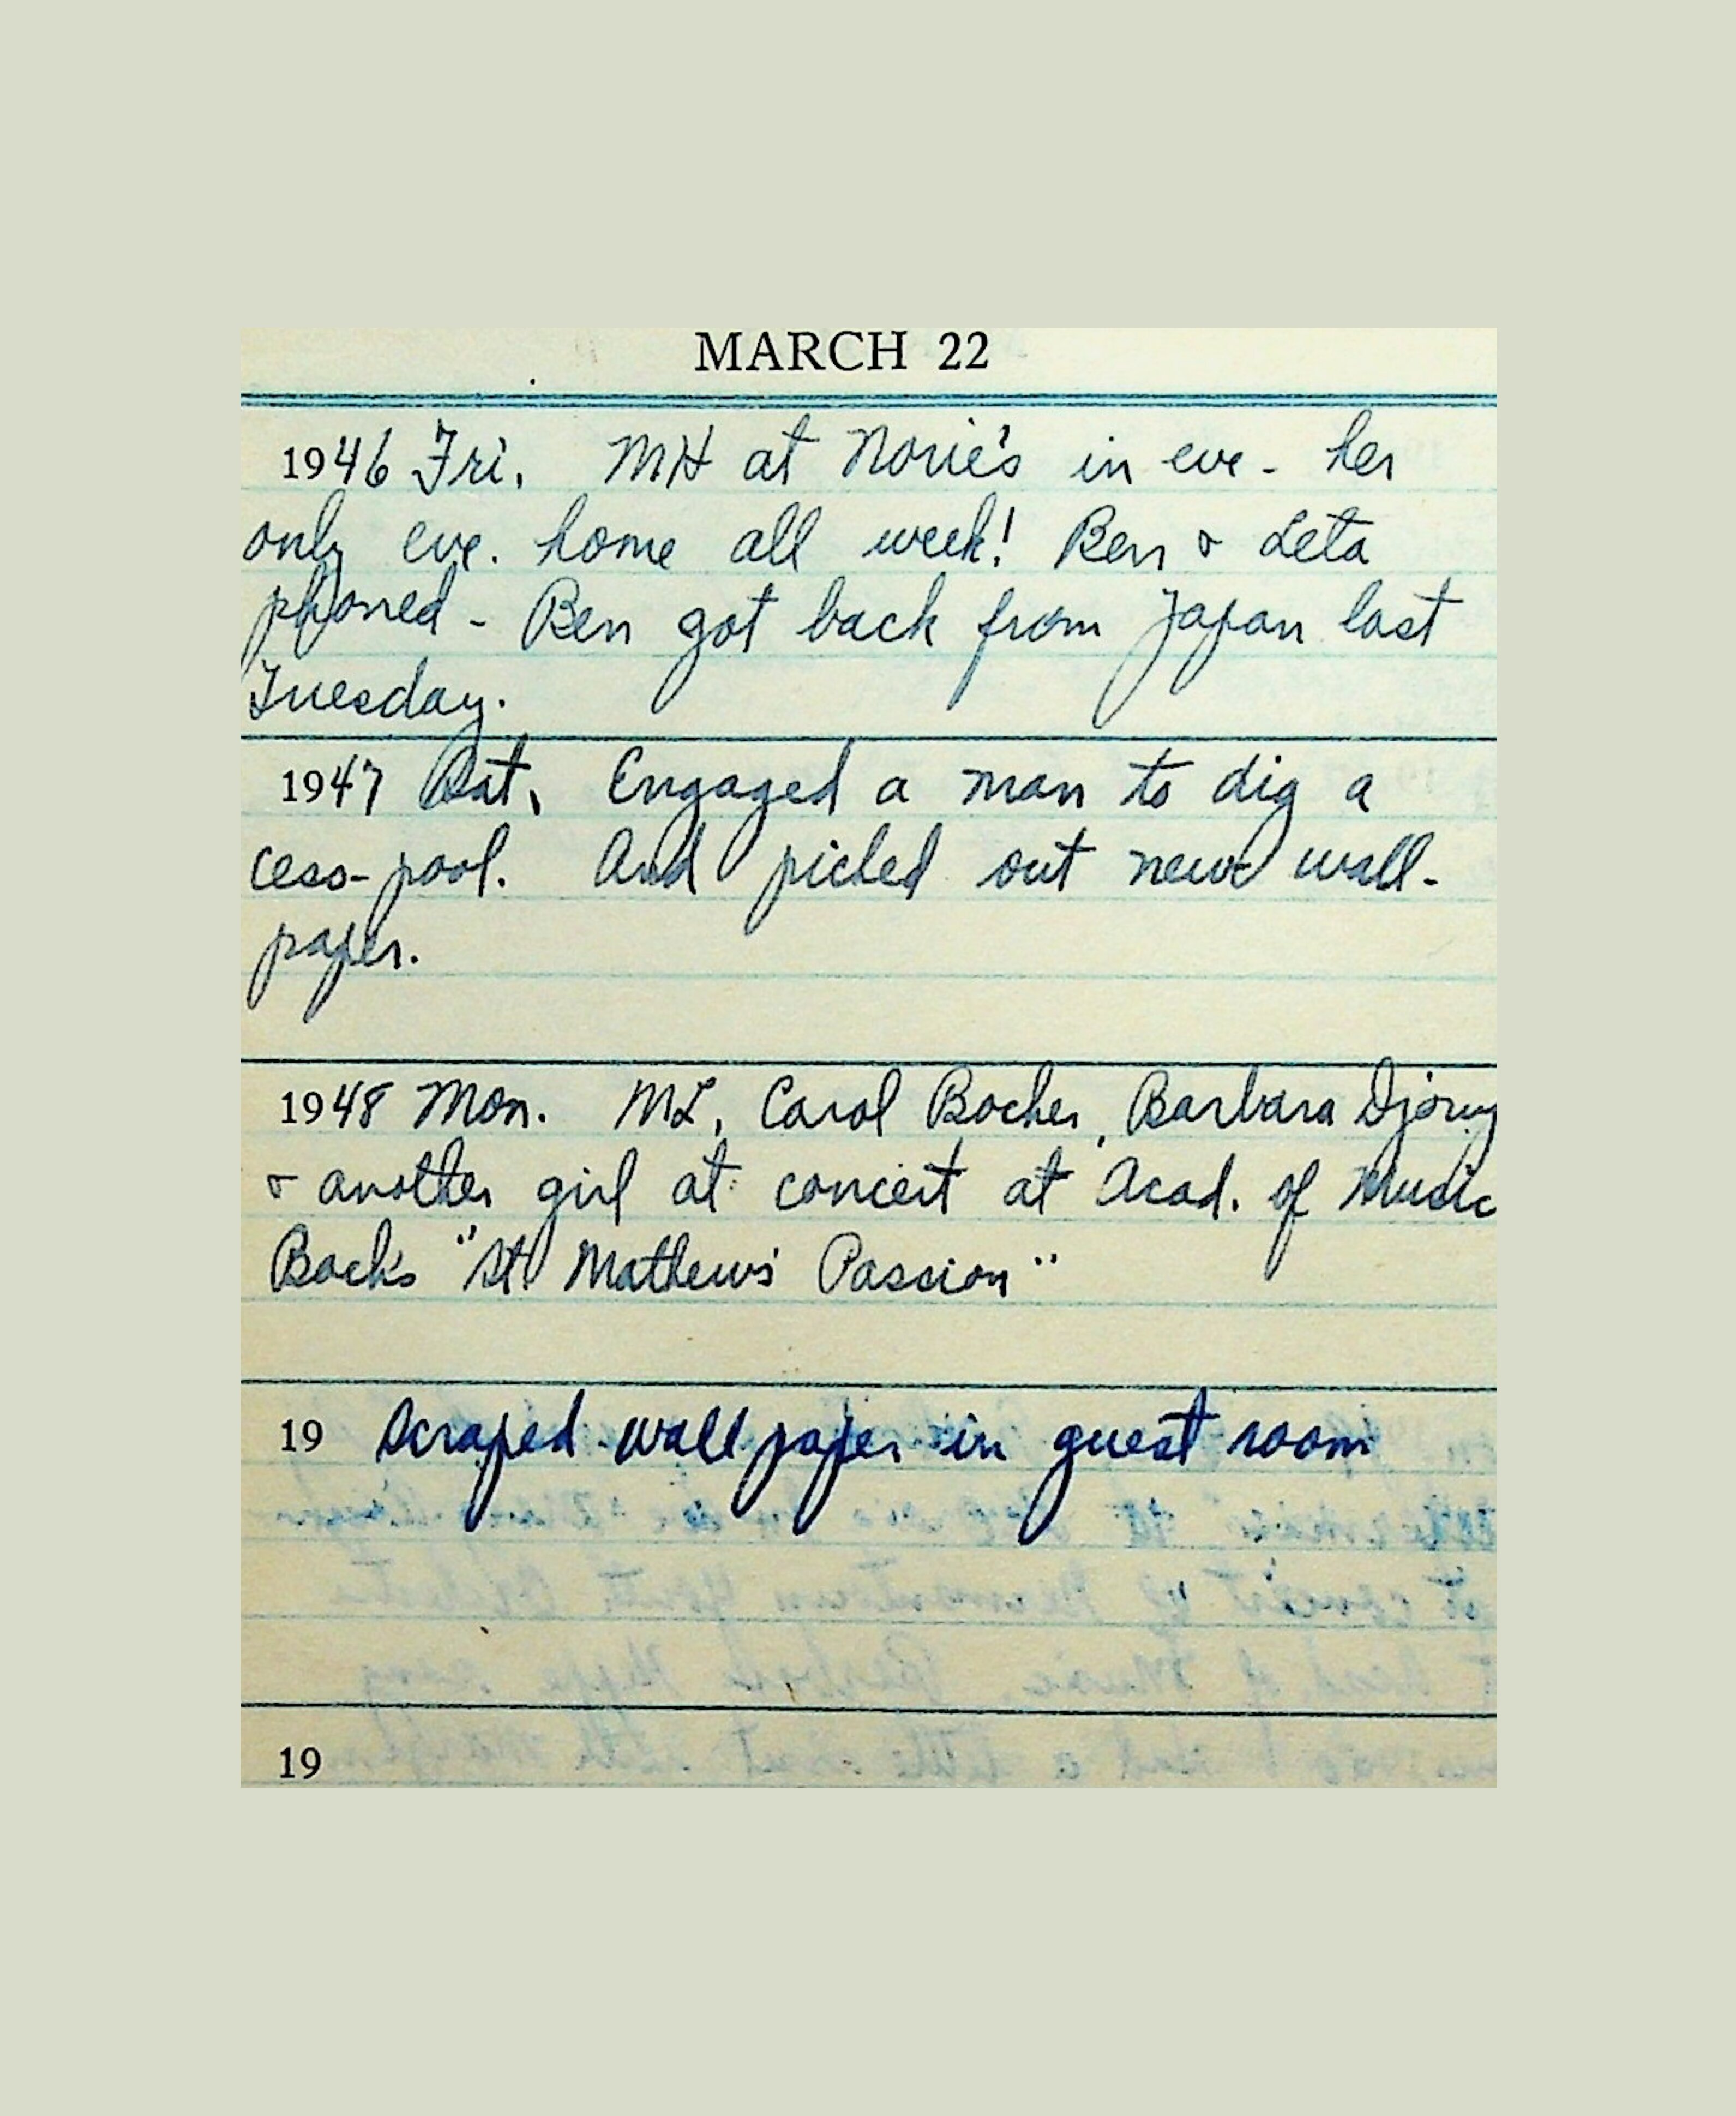 MARCH 22
1946 Fri. MH at Norie's in eve - her
only eve. home all week! Ben & Leta
phoned - Ben got back from Japan last
Tuesday.
1947 Sat. Engaged a man to dig a
cess-pool. And picked out new wall-
paper.
1948 Mon. ML, Carol Bocher, Barbara
& another girl at concert at Acad. of Music
Bach's "St. Mathew's Passion"
19 Scraped wall paper in guest room
19